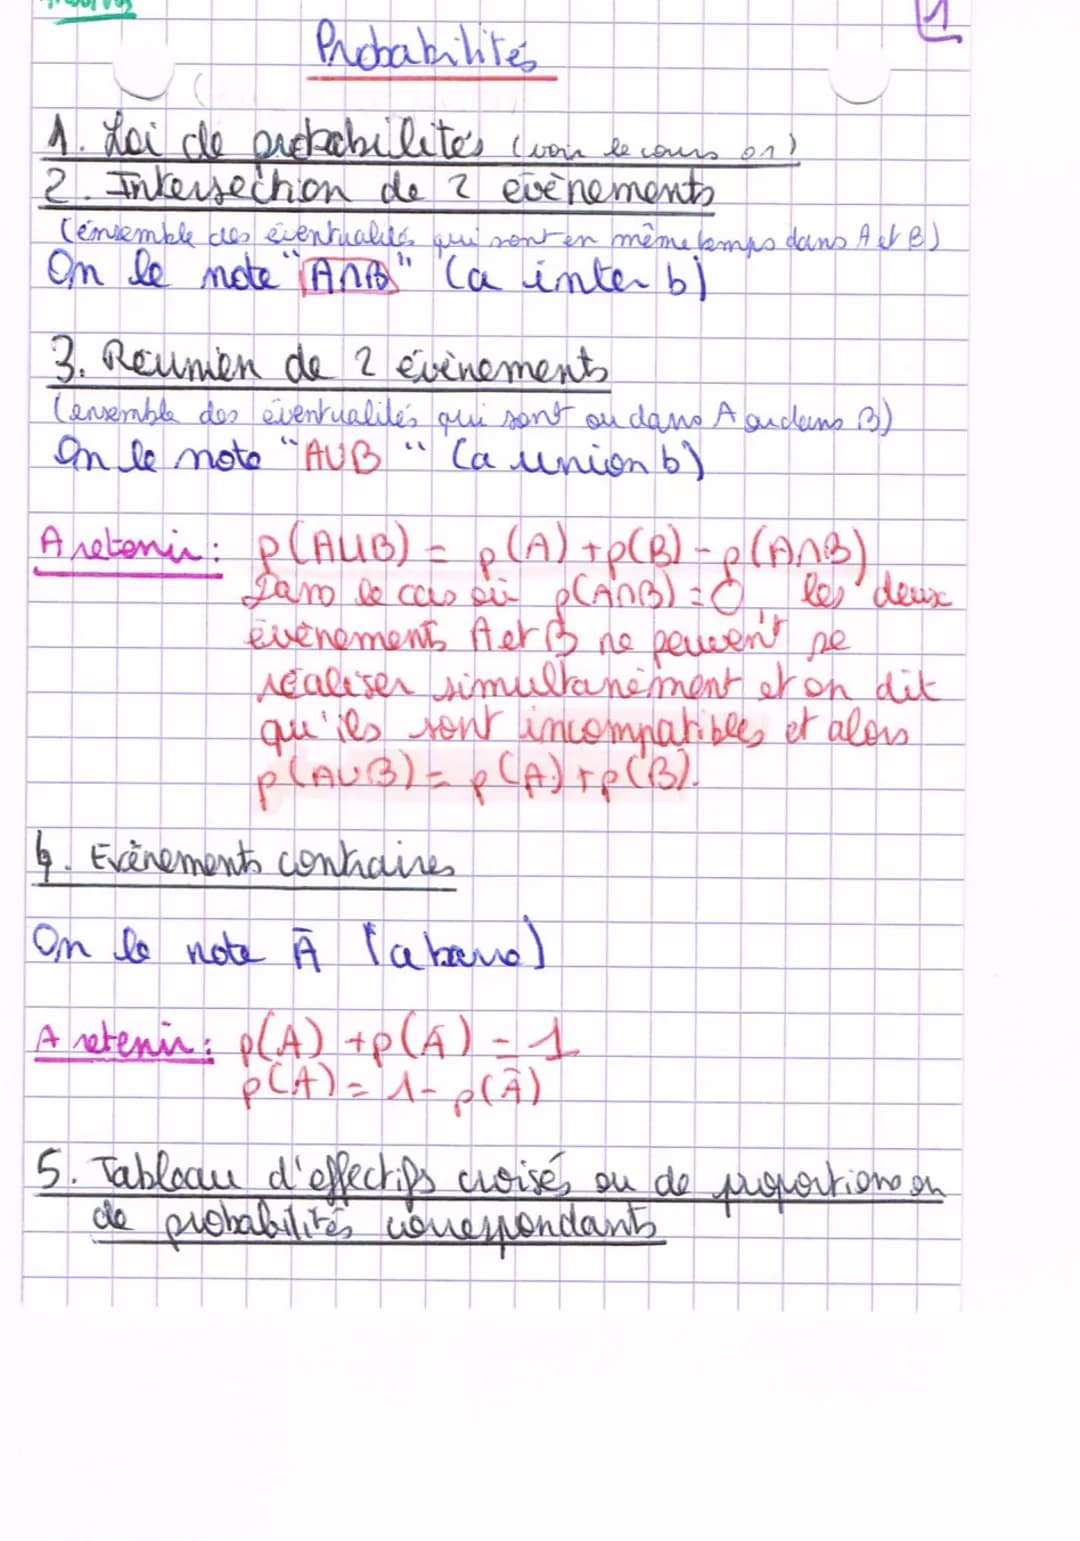 1
Probabilités
1. Loi de probabilités (voir le cours 01)
2. Intersection de 2 evènements
(ensemble des éventualités qui sont en même temps dans A et B)
On le note "A∩B" (a inter b)
3. Réunion de 2 évènements
(ensemble des éventualités qui sont ou dans A ou dans B)
On le note "AUB" (a union b)
A retenir : p(AUB) = p(A) + p(B) - p(A∩B)
Dans le cas où p(A∩B) = 0, les deux
évènements A et B ne peuvent se
réaliser simultanément et on dit
qu'ils sont incompatibles et alors
p(AUB) = p(A) + p(B).
4. Evènements contraires
On le note Ā (a barre)
A retenir : p(A) + p(Ā) = 1
p(A) = 1 - p(Ā)
5. Tableau d'effectifs croisés ou de proportions ou
de probabilités correspondants